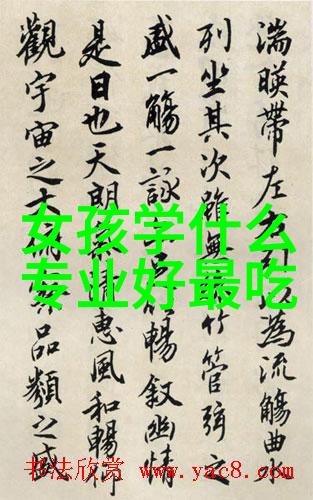 湍暎帶左右引以為流觴曲水
列坐其次雖無竹管弦之
盛一觴一詠暢敘幽情
是日也天朗惠風和暢仰
觀宇宙之大俯品類之盛
女孩学什么
专业好最吃
书法欣赏 www.yac8.com